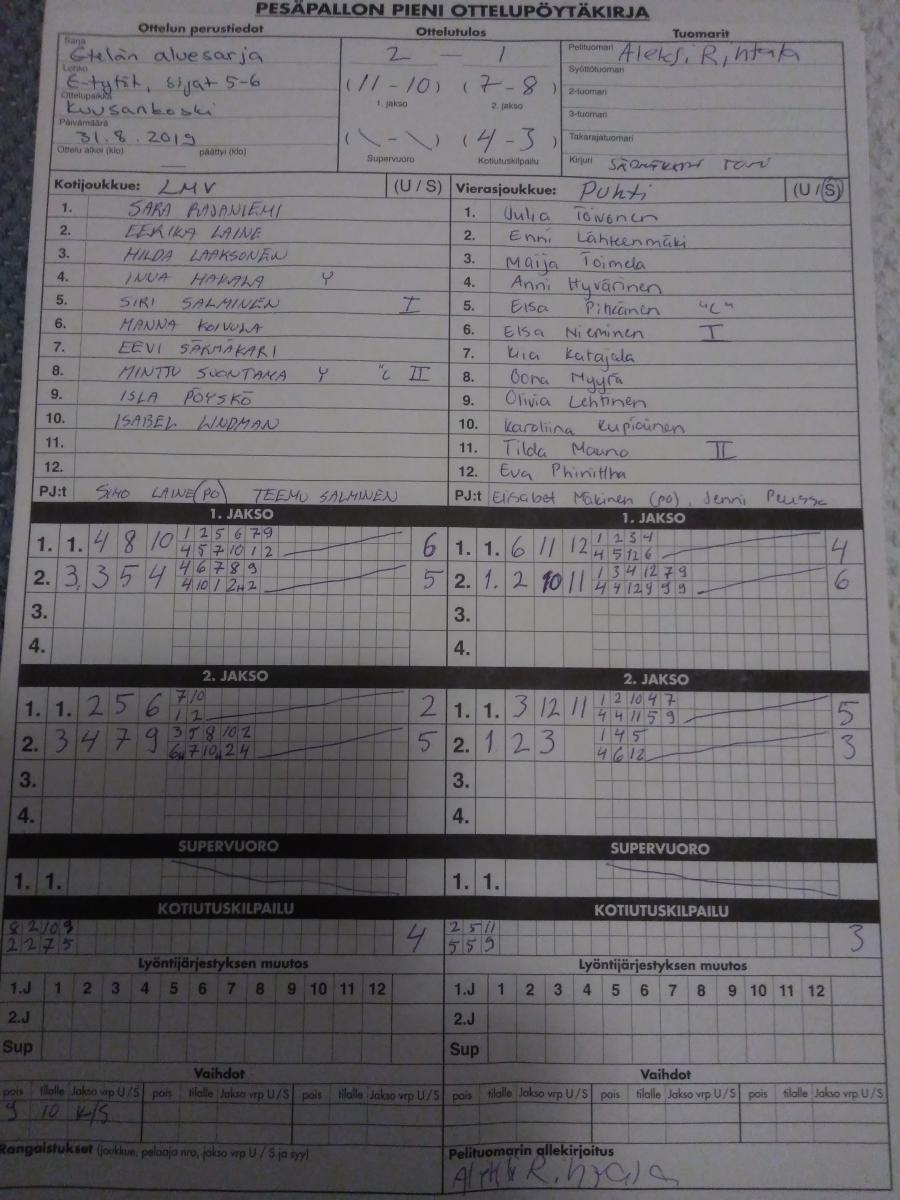 PESÄPALLON PIENI OTTELUPÖYTÄKIRJA
Ottelun perustiedot
Sarja
Etelän aluesarja
Lohko
E-tytöt, sijat 5-6
Ottelupaikka
Kuusankoski
Päivämäärä
31.8.2019
Ottelu alkoi (klo) — päättyi (klo)
Ottelutulos
2 — 1
(11 - 10) (7 - 8)
1. jakso 2. jakso
(\ - \) (4 - 3)
Supervuoro Kotiutuskilpailu
Tuomarit
Pelituomari Aleksi Rintala
Syöttötuomari
2-tuomari
3-tuomari
Takarajatuomari
Kirjuri
Kotijoukkue: LMV (U / S)
1. SARA RAJANIEMI
2. EERIKA LAINE
3. HILDA LAAKSONEN
4. INKA HAKALA Y
5. SIRI SALMINEN I
6. MANNA KOIVULA
7. EEVI SÄRMÄKARI
8. MINTTU SUONTAMA Y "C II
9. ISLA PÖYSKÖ
10. ISABEL LINDMAN
11.
12.
PJ:t SIMO LAINE (PO) TEEMU SALMINEN
Vierasjoukkue: Puhti (U / S)
1. Julia Toivonen
2. Enni Lähteenmäki
3. Maija Toimela
4. Anni Hyvärinen
5. Elsa Pitkänen "C"
6. Elsa Nieminen I
7. Kia Katajala
8. Oona Myyrä
9. Olivia Lehtinen
10. Karoliina Kupiainen
11. Tilda Mauno II
12. Eva
PJ:t Elisabet Mäkinen (po), Jenni
1. JAKSO
1. 1. 4 8 10 1 2 5 6 7 9 6
4 5 7 10 1 2
2. 3. 3 5 4 4 6 7 8 9 5
4 10 1 2 2
3.
4.
1. JAKSO
1. 1. 6 11 12 1 2 3 4 4
4 5 12 6
2. 1. 2 10 11 1 3 4 12 7 9 6
4 4 12 9 9 9
3.
4.
2. JAKSO
1. 1. 2 5 6 7 10 2
1 2
2. 3 4 7 9 3 5 8 10 2 5
6 7 10 2 4
3.
4.
2. JAKSO
1. 1. 3 12 11 1 2 10 4 7 5
4 4 11 5 9
2. 1 2 3 1 4 5 3
4 6 12
3.
4.
SUPERVUORO
1. 1.
SUPERVUORO
1. 1.
KOTIUTUSKILPAILU
8 2 10 9 4
2 2 7 5
KOTIUTUSKILPAILU
2 5 11 3
5 5 9
Lyöntijärjestyksen muutos
1.J 1 2 3 4 5 6 7 8 9 10 11 12
2.J
Sup
Lyöntijärjestyksen muutos
1.J 1 2 3 4 5 6 7 8 9 10 11 12
2.J
Sup
Vaihdot
pois tilalle Jakso vrp U / S pois tilalle Jakso vrp U / S pois tilalle Jakso vrp U / S
9 10 K/S
Vaihdot
pois tilalle Jakso vrp U / S pois tilalle Jakso vrp U / S pois tilalle Jakso vrp U / S
Rangaistukset (joukkue, pelaaja nro, jakso vrp U / S ja syy)
Pelituomarin allekirjoitus